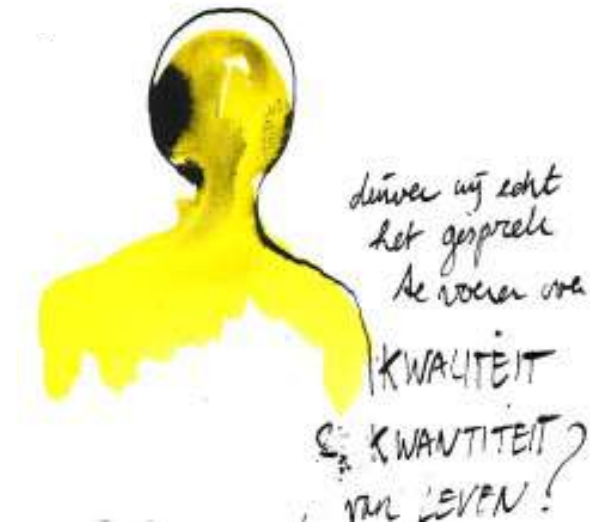 durven wij echt
het gesprek
te voeren over
KWALITEIT
& KWANTITEIT?
van LEVEN!